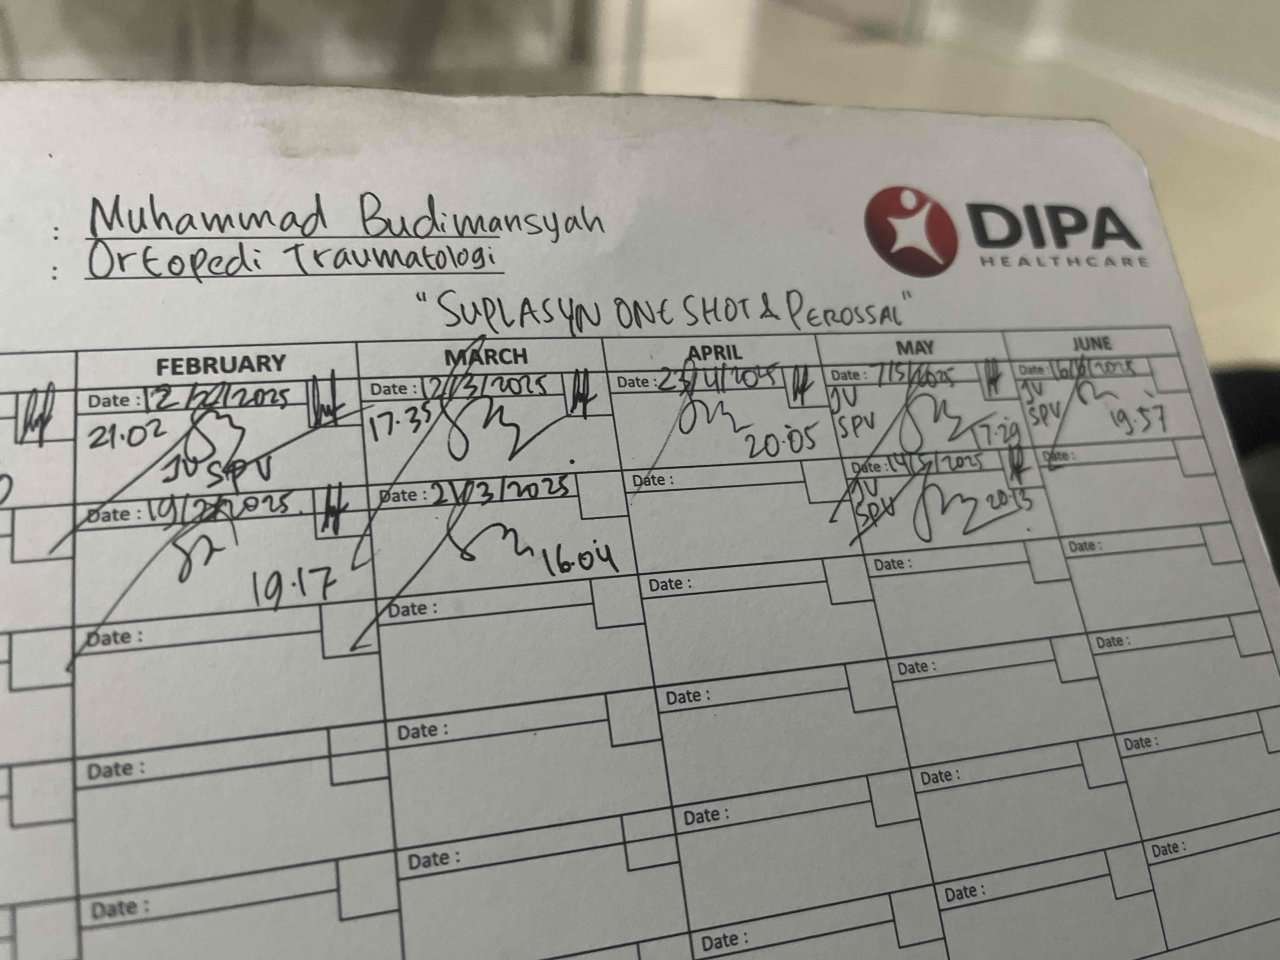 : Muhammad Budimansyah
: Ortopedi Traumatologi
DIPA
HEALTHCARE
"SUPLASYN ONE SHOT & PEROSSAL"
FEBRUARY MARCH APRIL MAY JUNE
Date : 12/2/2025 Date : 12/3/2025 Date : 23/4/2025 Date : 7/5/2025 Date : 16/6/2025
21.02 17.35 20.05 JV SPV 17.29 JV SPV 19.57
JV SPV
Date : 19/2/2025 Date : 21/3/2025 Date : Date : 14/5/2025 Date :
19.17 16.04 JV SPV 20.13
Date : Date : Date : Date : Date :
Date : Date : Date : Date : Date :
Date : Date : Date : Date : Date :
Date : Date : Date : Date : Date :